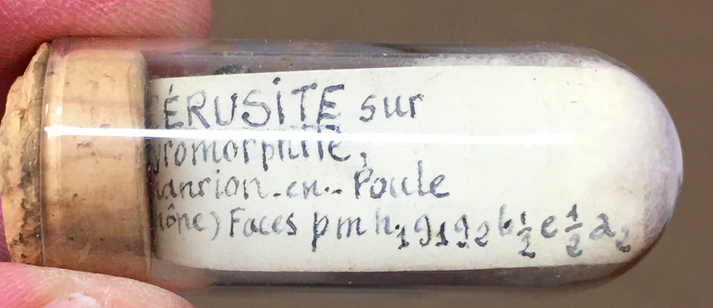 ÉRUSITE sur
yromorphite,
anrion-en-Poule
hône) Faces p m h₁ g₁ g₂ b½ e½ a₂